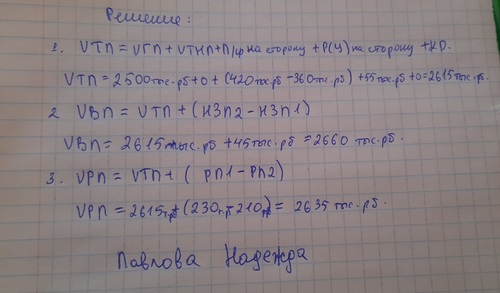 Решение:
1. VТП = VГП + VТНП + П/ф на сторону + Р(У) на сторону + КО.
VТП = 2500 тыс.рб + 0 + (420 тыс.рб - 360 тыс.рб) + 55 тыс.рб + 0 = 2615 тыс.рб.
2 VВП = VТП + (НЗП2 - НЗП1)
VВП = 2615 тыс.рб + 45 тыс.рб = 2660 тыс.рб.
3. VРП = VТП + ( РП1 - РП2)
VРП = 2615 т.рб + (230 т.р - 210 т.р) = 2635 тыс.рб.
Павлова Надежда